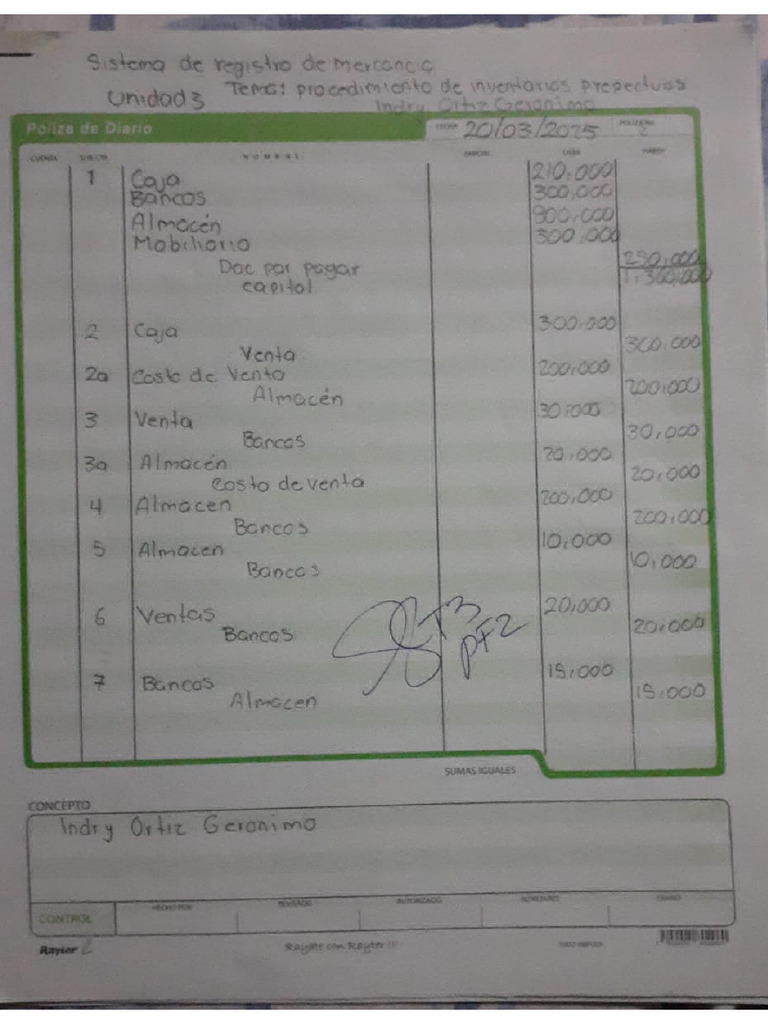 Sistema de registro de mercancia
Unidad 3 Tema: procedimiento de inventarios prepectuos
Indry Ortiz Geronimo
Póliza de Diario FECHA 20/03/2025 PÓLIZA No. 2
CUENTA SUB-CTA NOMBRE PARCIAL DEBE HABER
1 Caja 210,000
Bancos 300,000
Almacén 900,000
Mobiliario 300,000
Doc por pagar 250,000
capital
2 Caja 300,000
Venta 300,000
2a Costo de Venta 200,000
Almacén 200,000
3 Venta 30,000
Bancos 30,000
3a Almacén 20,000
Costo de venta 20,000
4 Almacen 200,000
Bancos 200,000
5 Almacen 10,000
Bancos 10,000
6 Ventas 20,000
Bancos 20,000
T3
PF2
7 Bancos 15,000
Almacen 15,000
SUMAS IGUALES
CONCEPTO
Indry Ortiz Geronimo
HECHO POR REVISADO AUTORIZADO AUXILIARES DIARIO
CONTROL
Rayter Rayate con Rayter !!!